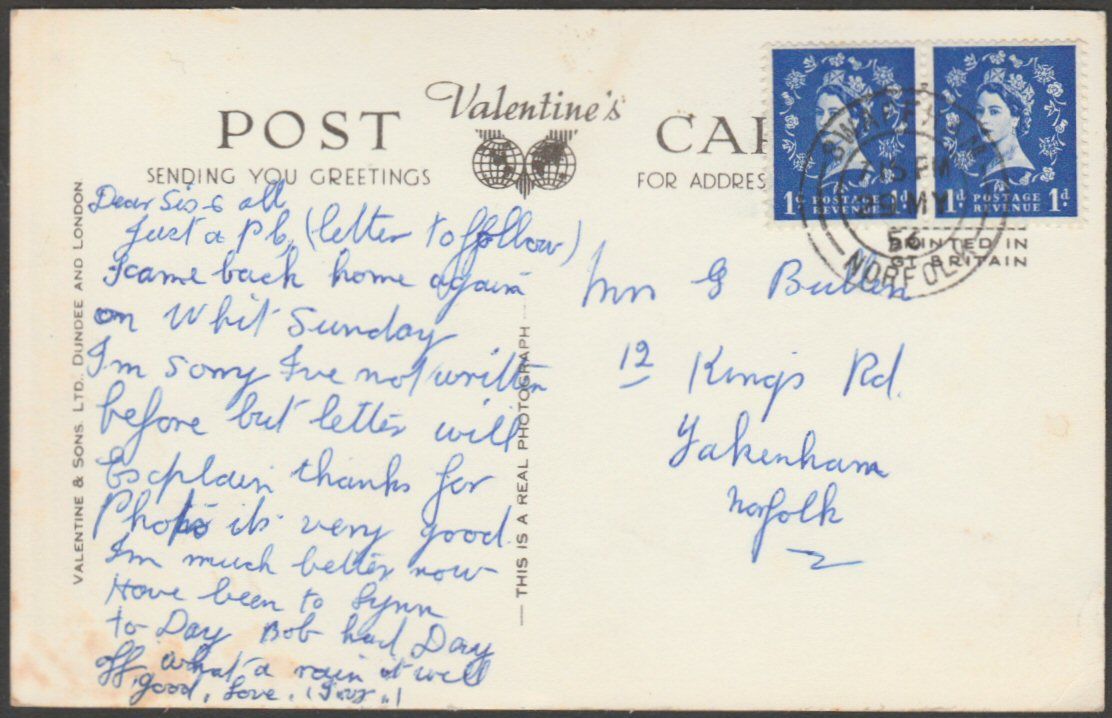 Valentine's
POST CAR
SENDING YOU GREETINGS
FOR ADDRES
Dear Sis & all
Just a P.C. (letter to follow)
I came back home again
on Whit Sunday
I'm sorry I've not written
before but letter will
Explain thanks for
Photo it's very good.
I'm much better now
Have been to Lynn
to Day Bob had Day
off, what a rain it will
good, Love.
VALENTINE & SONS. LTD., DUNDEE AND LONDON.
THIS IS A REAL PHOTOGRAPH
1d POSTAGE REVENUE 1d
1d POSTAGE REVENUE 1d
SWAFFHAM
7 15 PM
MY
56
NORFOLK
PRINTED IN
GT. BRITAIN
Mrs G
12 Kings Rd.
Fakenham
Norfolk